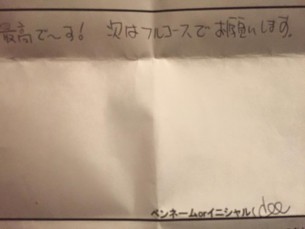 最高で〜す! 次はフルコースでお願いします。
ペンネームorイニシャル( dee